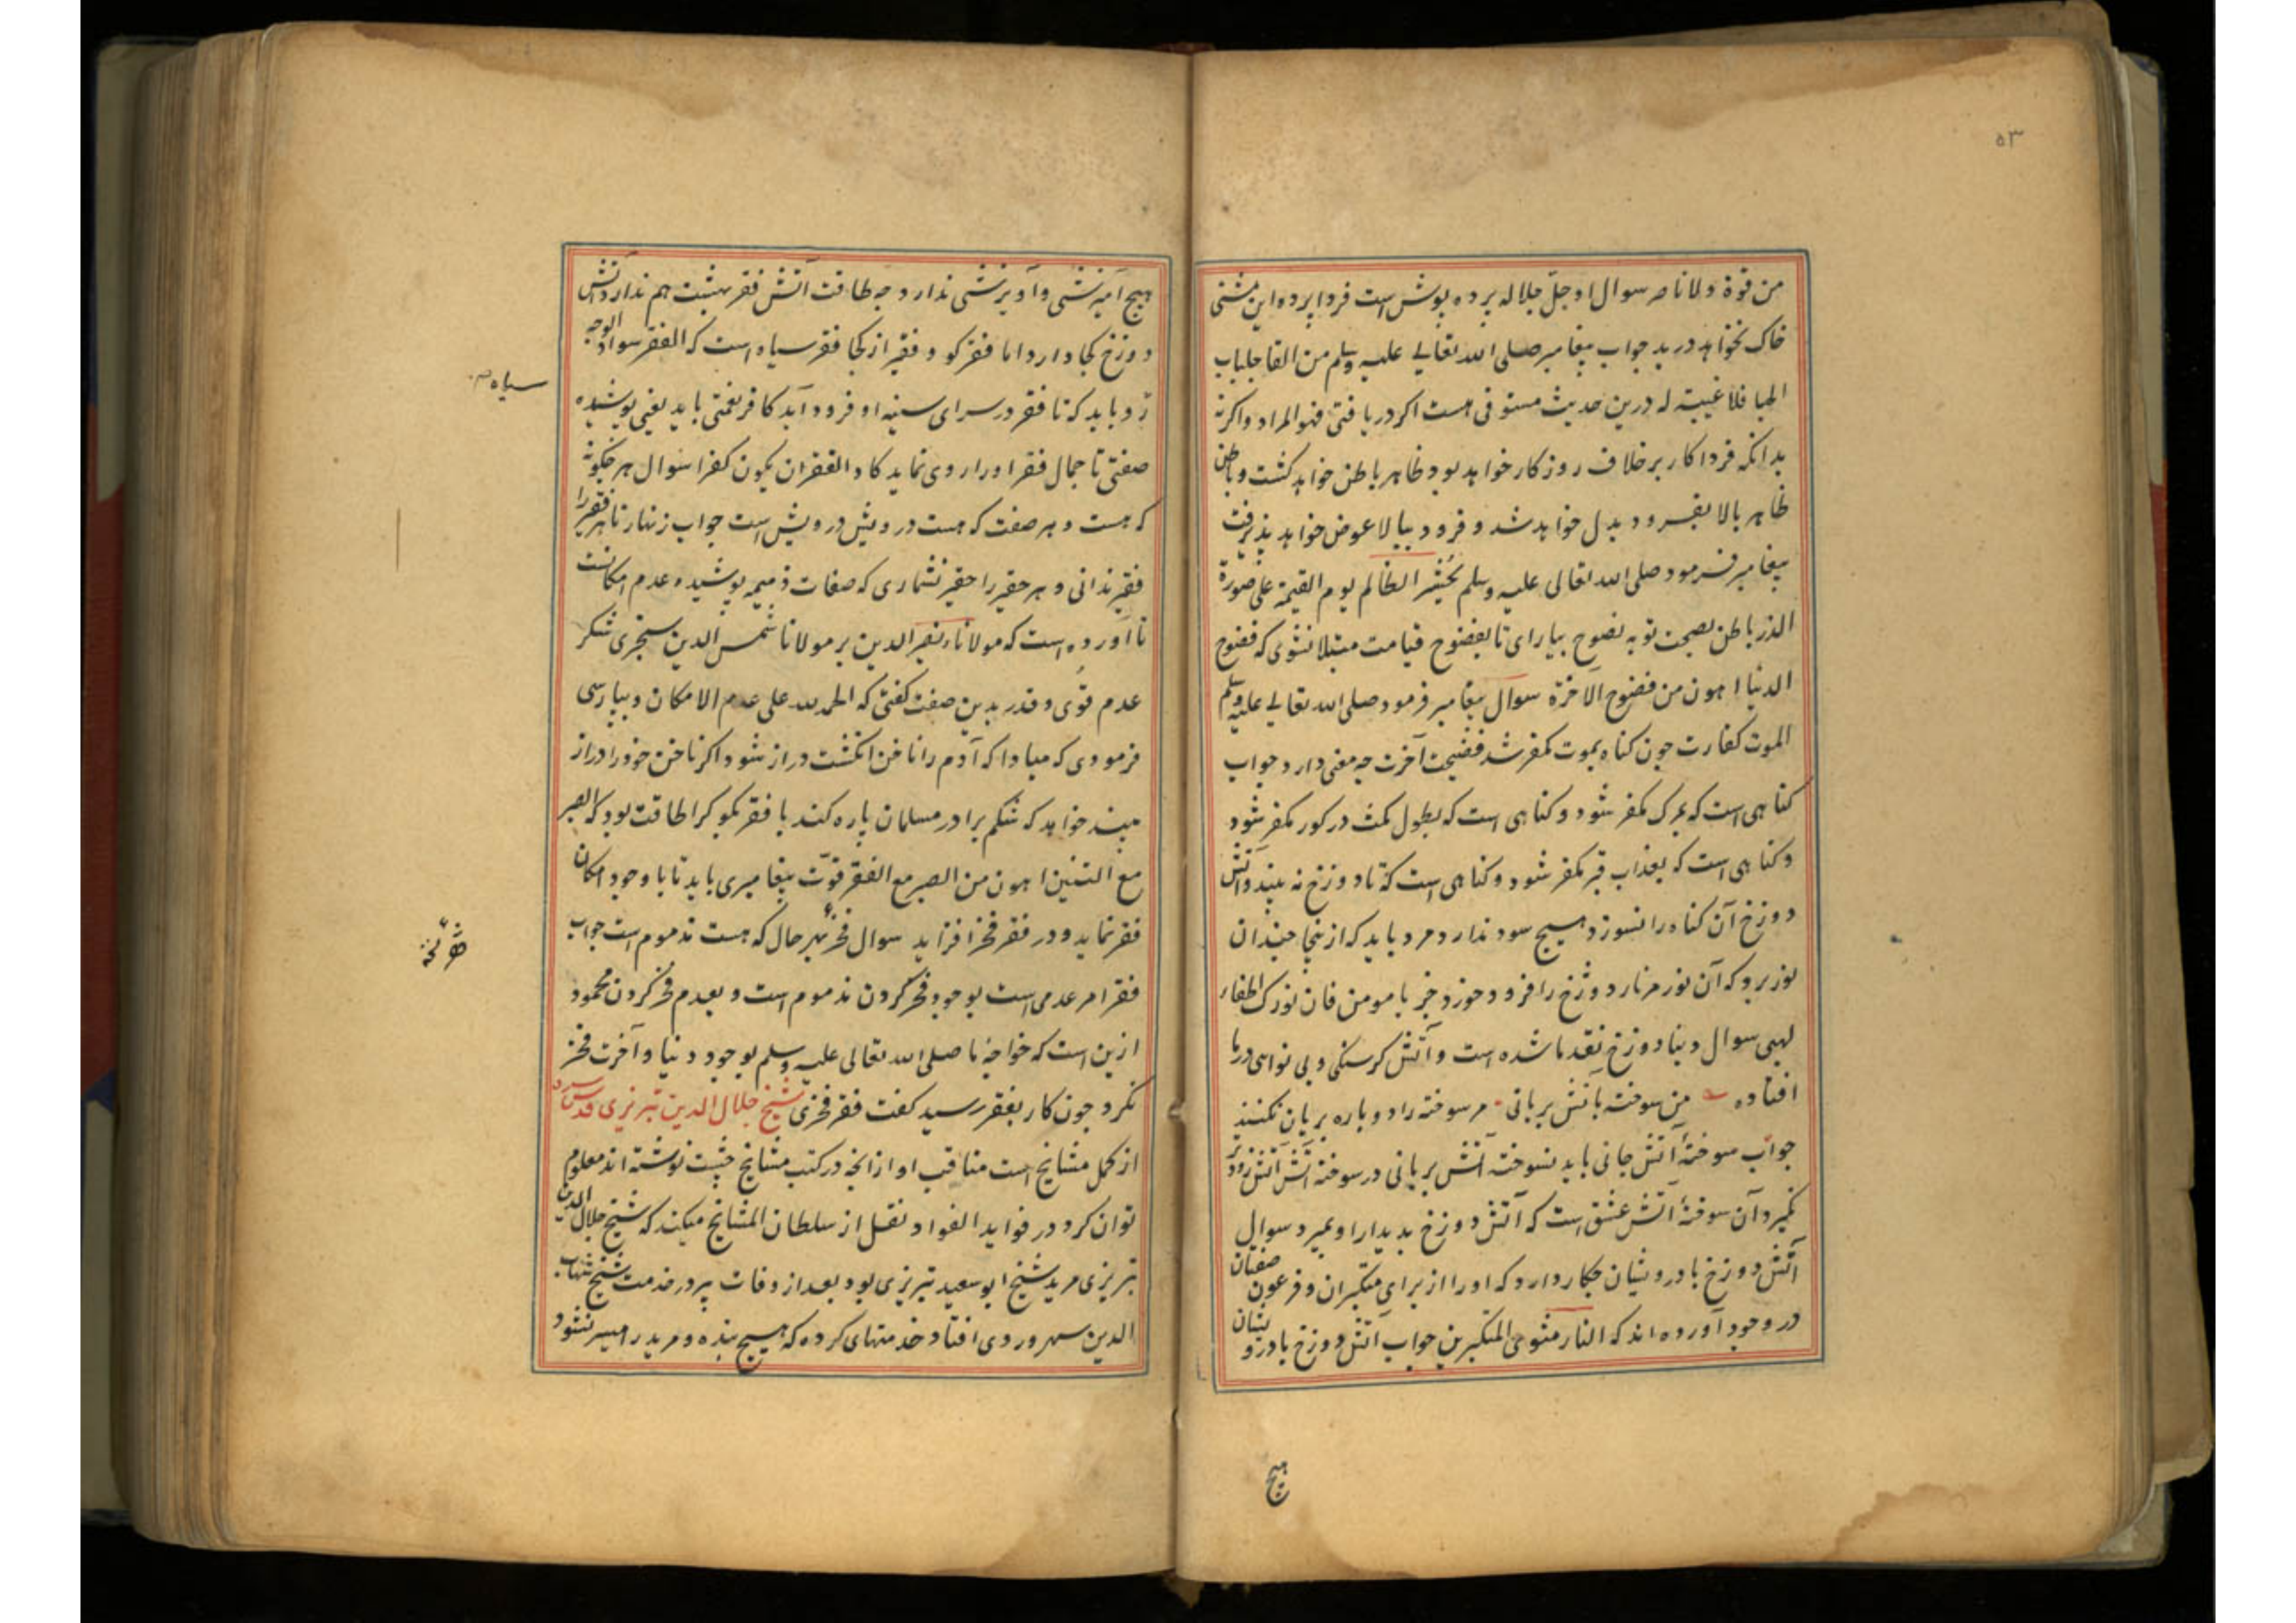 ۵۳
من قوة ولا ناصر سوال او جلّ جلاله پرده پوش است فردا پرده این مشتی
خاک نخواهد درید جواب پیغامبر صلی الله تعالی علیه وسلم من القا جلباب
الحیا فلا غیبة له درین حدیث مستوفی است اکر دریافتی فهو المراد واکرنه
بدانکه فردا کار برخلاف روزکار خواهد بود ظاهر باطن خواهد کشت و باطن
ظاهر بالا بفرود بدل خواهد شد و فرود ببالا عوض خواهد پذیرفت
پیغامبر فرمود صلی الله تعالی علیه وسلم یحشر الظالم یوم القیمة علی صورة
الذر باطن بصحت توبه نصوح بیارای تا بفضوح قیامت مبتلا نشوی که فضوح
الدنیا اهون من فضوح الآخرة سوال پیغامبر فرمود صلی الله تعالی علیه وسلم
الموت کفارت چون کناه بموت مکفر شد فضیحت آخرت چه معنی دارد جواب
کناهی است که بمرک مکفر شود و کناهی است که بطول مکث در کور مکفر شود
و کناهی است که بعذاب قبر مکفر شود و کناهی است که تا دوزخ نه بیند و آتش
دوزخ آن کناه را نسوزد هیچ سود ندارد مرد باید که ازینجا چندان
نور برد که آن نور مر نار دوزخ را فرو خورد جز یا مومن فان نورک اطفاء
لهبی سوال دنیا دوزخ نقد ما شده است و آتش کرسنکی و بی نوایی در ما
افتاده من سوخته بآتش بریانی مر سوخته را دوباره بریان نکنند
جواب سوختهٔ آتش جانی باید نسوخته آتش بریانی در سوخته آتش آتش زودتر
نمیرد آن سوختهٔ آتش عشق است که آتش دوزخ بدیدار او بمیرد سوال
آتش دوزخ با درویشان چکار دارد که او را از برای متکبران و فرعون صفتان
در وجود آورده اند که النار مثوی المتکبرین جواب آتش دوزخ با درویشان
هیچ
هیچ آمیزشی و آویزشی ندارد چه طاقت آتش فقر بهشت هم ندارد آتش
دوزخ کجا دارد اما فقر کو و فقیر از کجا فقر سیاه است که الفقر سواد الوجه
رو باید که تا فقر در سرای سینه او فرود آید کافر نعمتی باید یعنی پوشیده
سیاه
صفتی تا جمال فقر او را روی نماید کاد الفقر ان یکون کفرا سوال هر چکونه
که هست و بهر صفت که هست درویش درویش است جواب زنهار تا هر فقیر را
فقیر ندانی و هر حقیر را حقیر نشماری که صفات ذمیمه پوشیده عدم امکانست
تا آورده است که مولانا نصیر الدین بر مولانا شمس الدین سنجری شکر
عدم قوی و قدر بدین صفت کفتی که الحمد لله علی عدم الامکان و بپارسی
فرمودی که مبادا که آدم را ناخن انکشت دراز شود اکر ناخن خود را دراز
بیند خواهد که شکم برادر مسلمان پاره کند با فقر نکو کرا طاقت بود که الصبر
مع التنین اهون من الصبر مع الفقر قوت پیغامبری باید تا با وجود امکان
فقر نماید و در فقر فخر افزاید سوال فخر بهر حال که هست مذموم است جواب
فقر امر عدمی است بوجود فخر کردن مذموم است و بعدم فخر کردن محمود
ازین است که خواجهٔ ما صلی الله تعالی علیه وسلم بوجود دنیا و آخرت فخر
نکرد چون کار بفقر رسید کفت فقر فخری شیخ جلال الدین تبریزی قدس سره
از کمل مشایخ است مناقب او از آنچه در کتب مشایخ چشت نوشته اند معلوم
توان کرد در فواید الفواد نقل از سلطان المشایخ میکند که شیخ جلال الدین
تبریزی مرید شیخ ابو سعید تبریزی بود بعد از وفات پیر در خدمت شیخ شهاب
الدین سهروردی افتاد خدمتهای کرده که هیچ بنده و مرید را میسر نشود